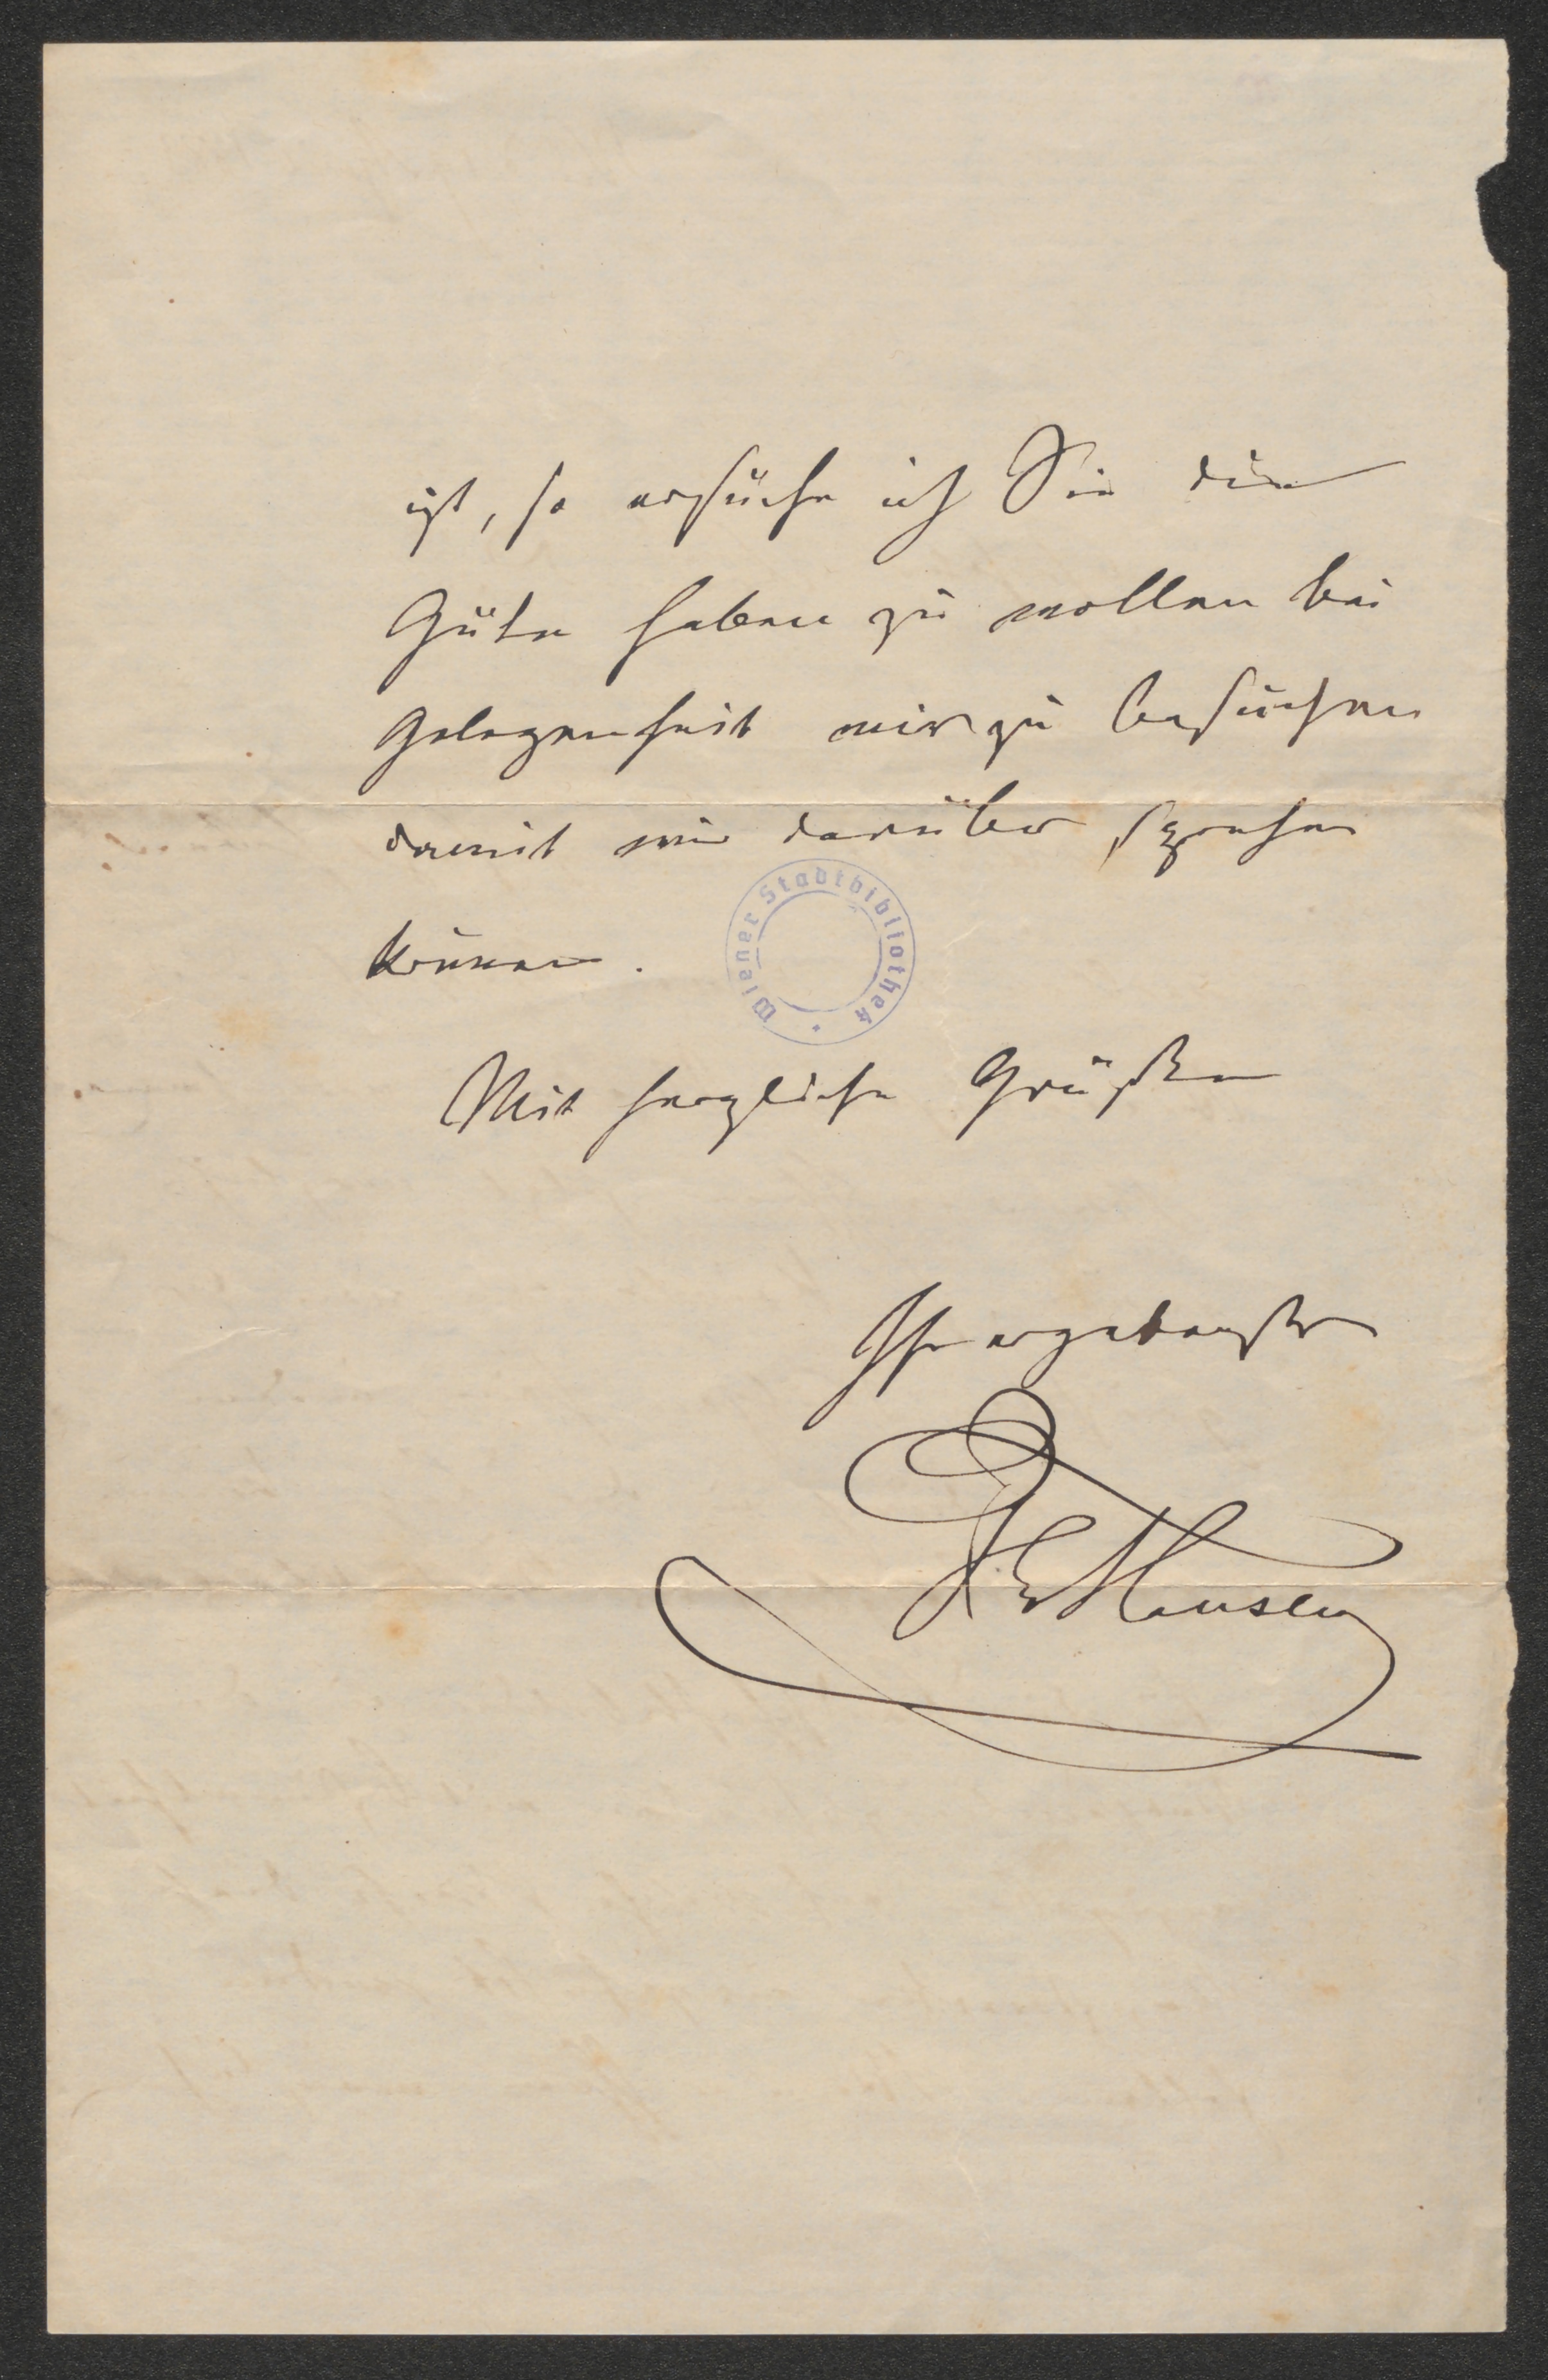 ist, so ersuche ich Sie die
Güte haben zu wollen bei
Gelegenheit mir zu besuchen
damit wir darüber sprechen
können.
Wiener Stadtbibliothek
Mit herzliche Grüßen
Ihr ergebenster
Hansen